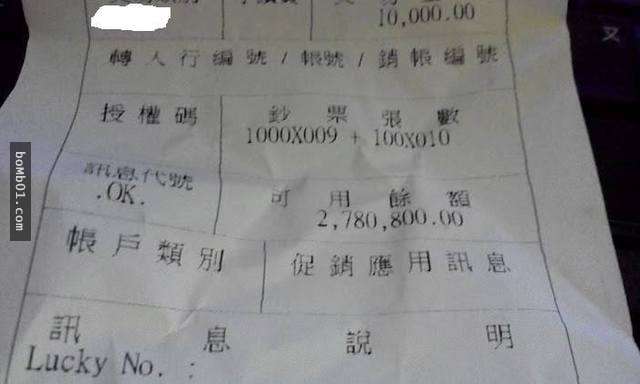 10,000.00
轉入行編號/帳號/銷帳編號
授權碼 鈔票張數
1000X009 + 100X010
訊息代號 可用餘額
.OK. 2,780,800.00
帳戶類別 促銷應用訊息
訊息說明
Lucky No. :
boMb01.com